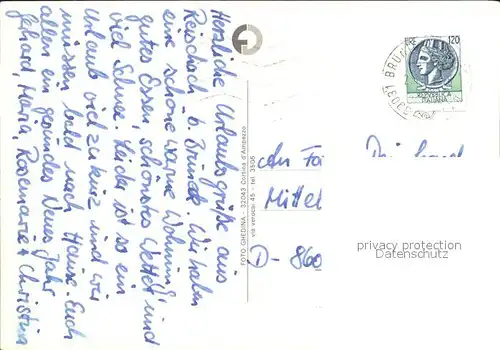 Herzliche Urlaubsgrüße aus
Reischach b. Bruneck. Wir haben
eine schöne warme Wohnung,
gutes Essen, schönstes Wetter und
viel Schnee. Leider ist so ein
Urlaub viel zu kurz und wir
müssen bald nach Hause. Euch
allen ein gesundes Neues Jahr
Gerhard, Maria, Rosemarie + Christina
FOTO GHEDINA - 32043 Cortina d'Ampezzo
via verocai 45 - tel. 3506
120
REPUBBLICA
ITALIANA
An Fa
Mittel
D-860
privacy protection
Datenschutz